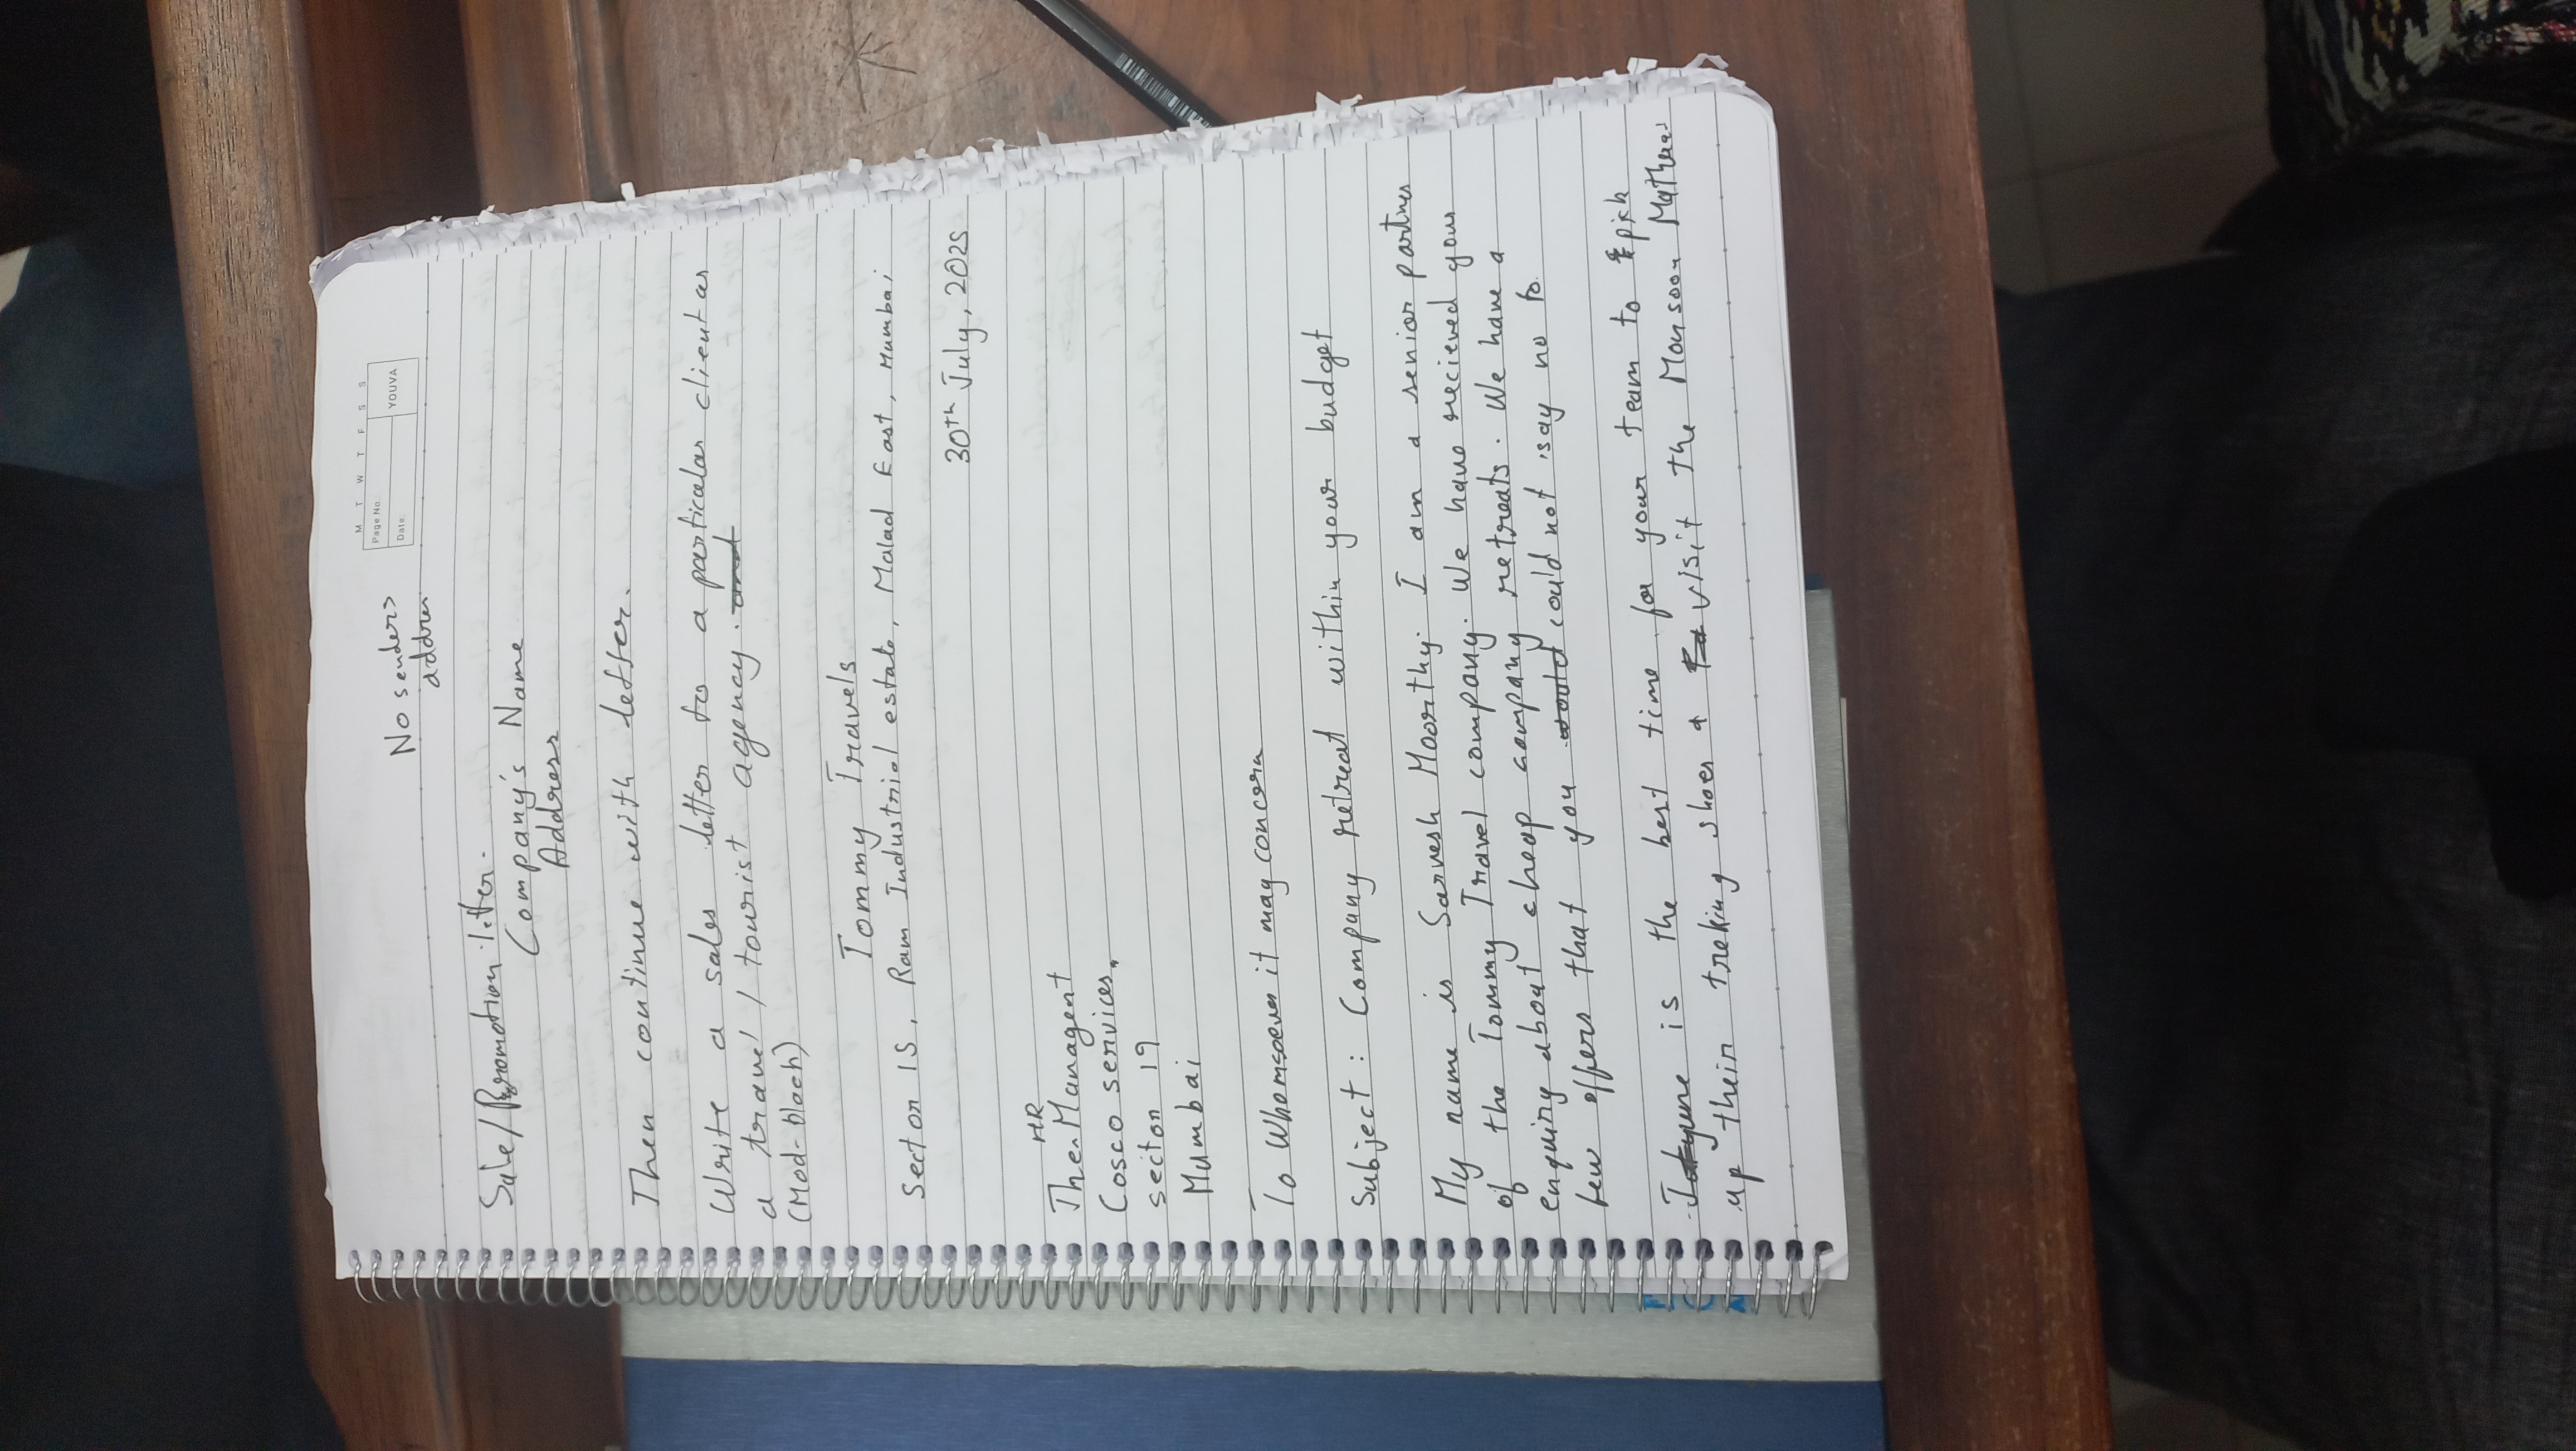 M T W T F S S
Page No.:
Date:
YOUVA
No senders
address
Sale/Promotion letter.
Company's Name
Address
Then continue with letter.
Write a sales letter to a particular client as
a travel / tourist agency. and
(Mod-block)
Tommy Travels
Sector 15, Ram Industrial estate, Malad East, Mumbai
30th July, 2025
HR
The Managent
Cosco services,
sector 19
Mumbai
To Whomsoever it may concern
Subject: Company retreat within your budget
My name is Sarvesh Moorthy. I am a senior partner
of the Tommy Travel company. We have recieved your
enquiring about cheap company retreats. We have a
few offers that you would could not say no to.
is the best time for your team to pick
up their treking shoes & visit the Monsoon Matheran